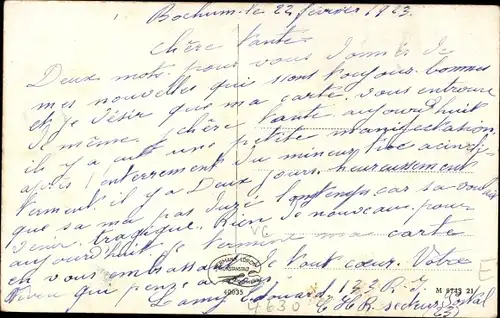 Bochum le 22 février 1923
Chère Tante
Deux mots pour vous donner de
mes nouvelles qui sont toujours bonnes
et je désir que ma carte vous entrouve
de même. Chère Tante aujourd'huit
il y a eut une petite manifectation
après l'enterrement du mineur
il y a Deux jours. heureusement
que sa ma pas duré longtemps car sa
venir tragique. Rien de nouveau pour
aujourd'huit je termine ma carte
en vous embrassant de tout cœur. Votre
neveu qui pense a vous
Edouard 133 R. I.
secteur Postal
40035
M 6743 21
4630
E